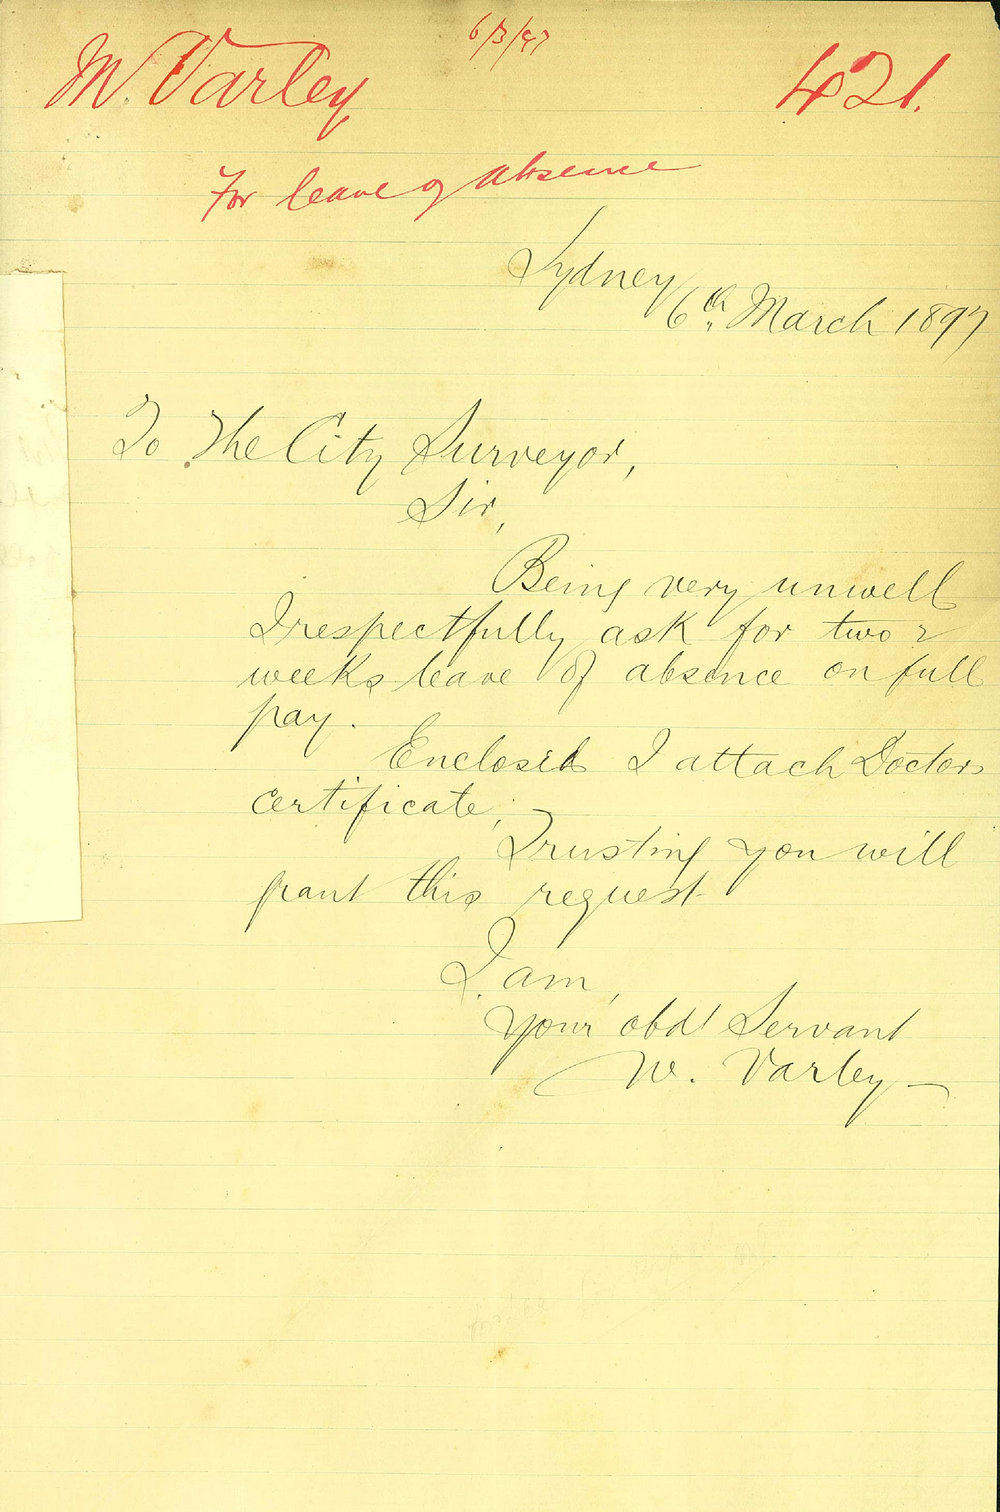 6/3/97
M. Varley 421.
For leave of absence
Sydney
6th March 1897
To The City Surveyor,
Sir,
Being very unwell
I respectfully ask for two 2
weeks leave of absence on full
pay.
Enclosed I attach Doctors
certificate,
Trusting you will
grant this request
I am,
Your obdt Servant
W. Varley